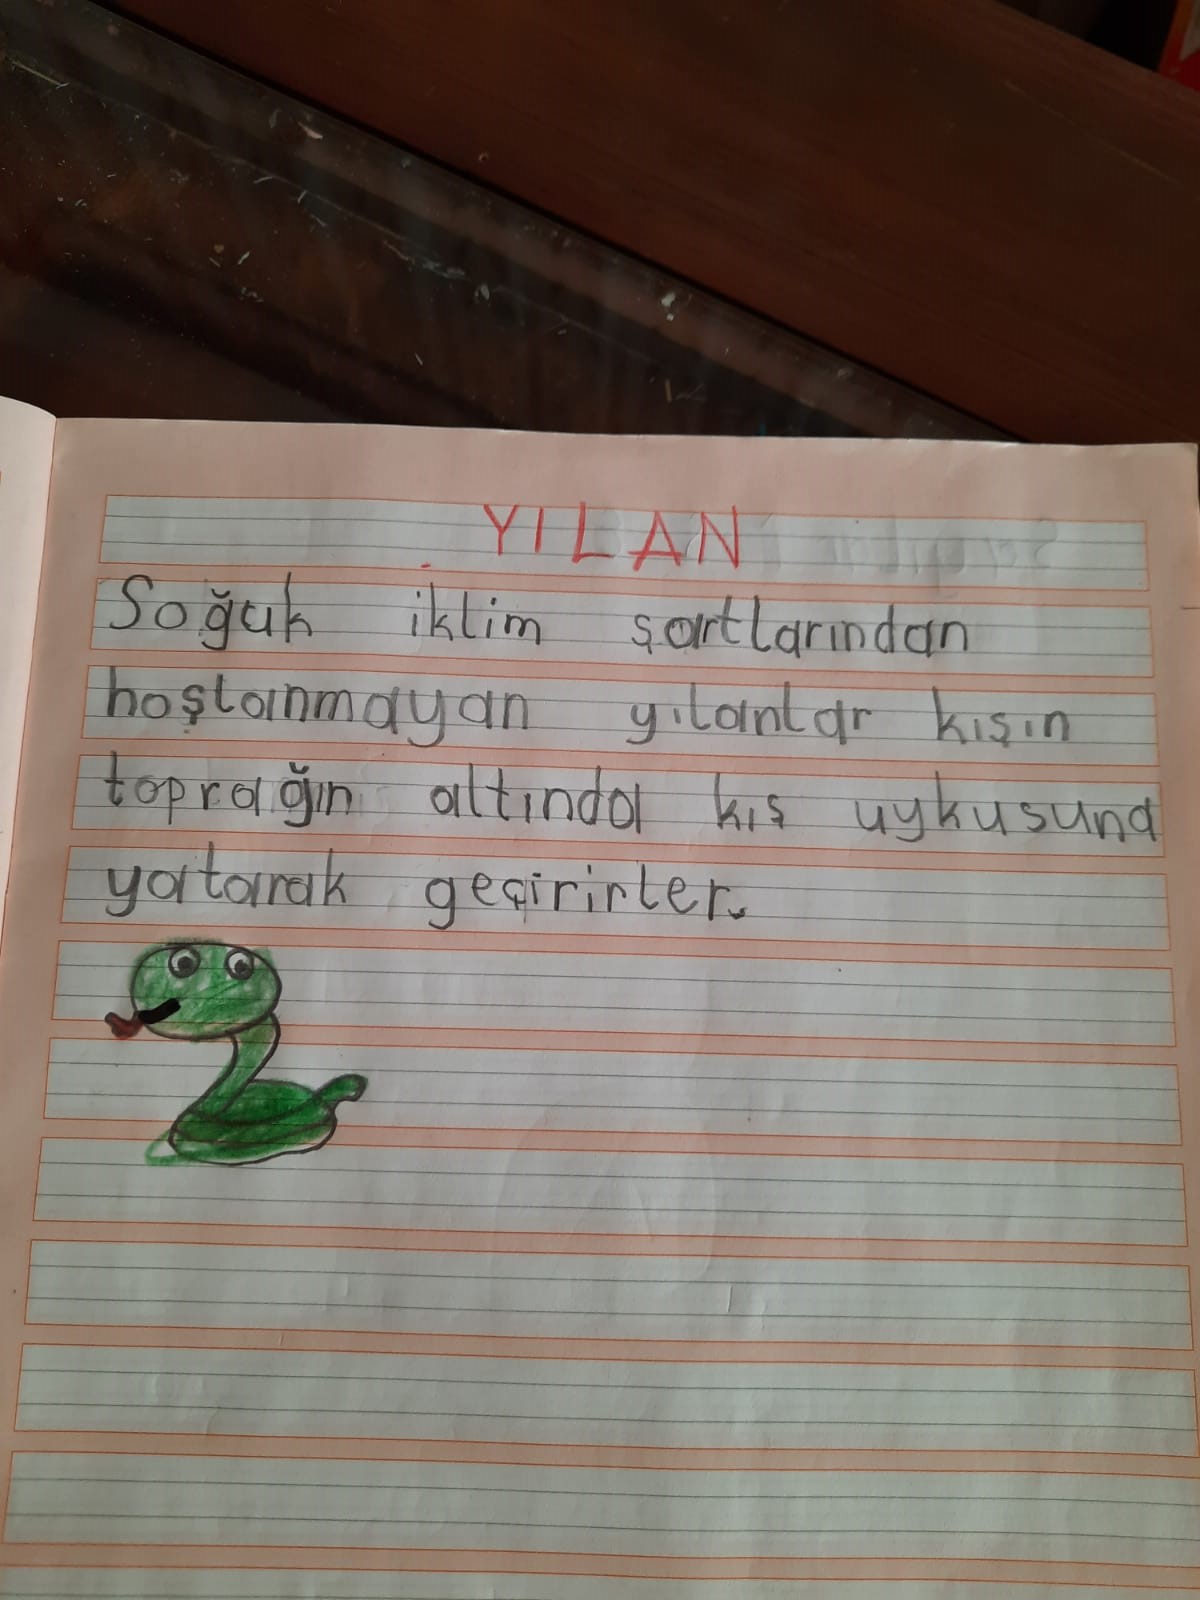 YILAN
Soğuk iklim şartlarından
hoşlanmayan yılanlar kışın
toprağın altında kış uykusuna
yatarak geçirirler.